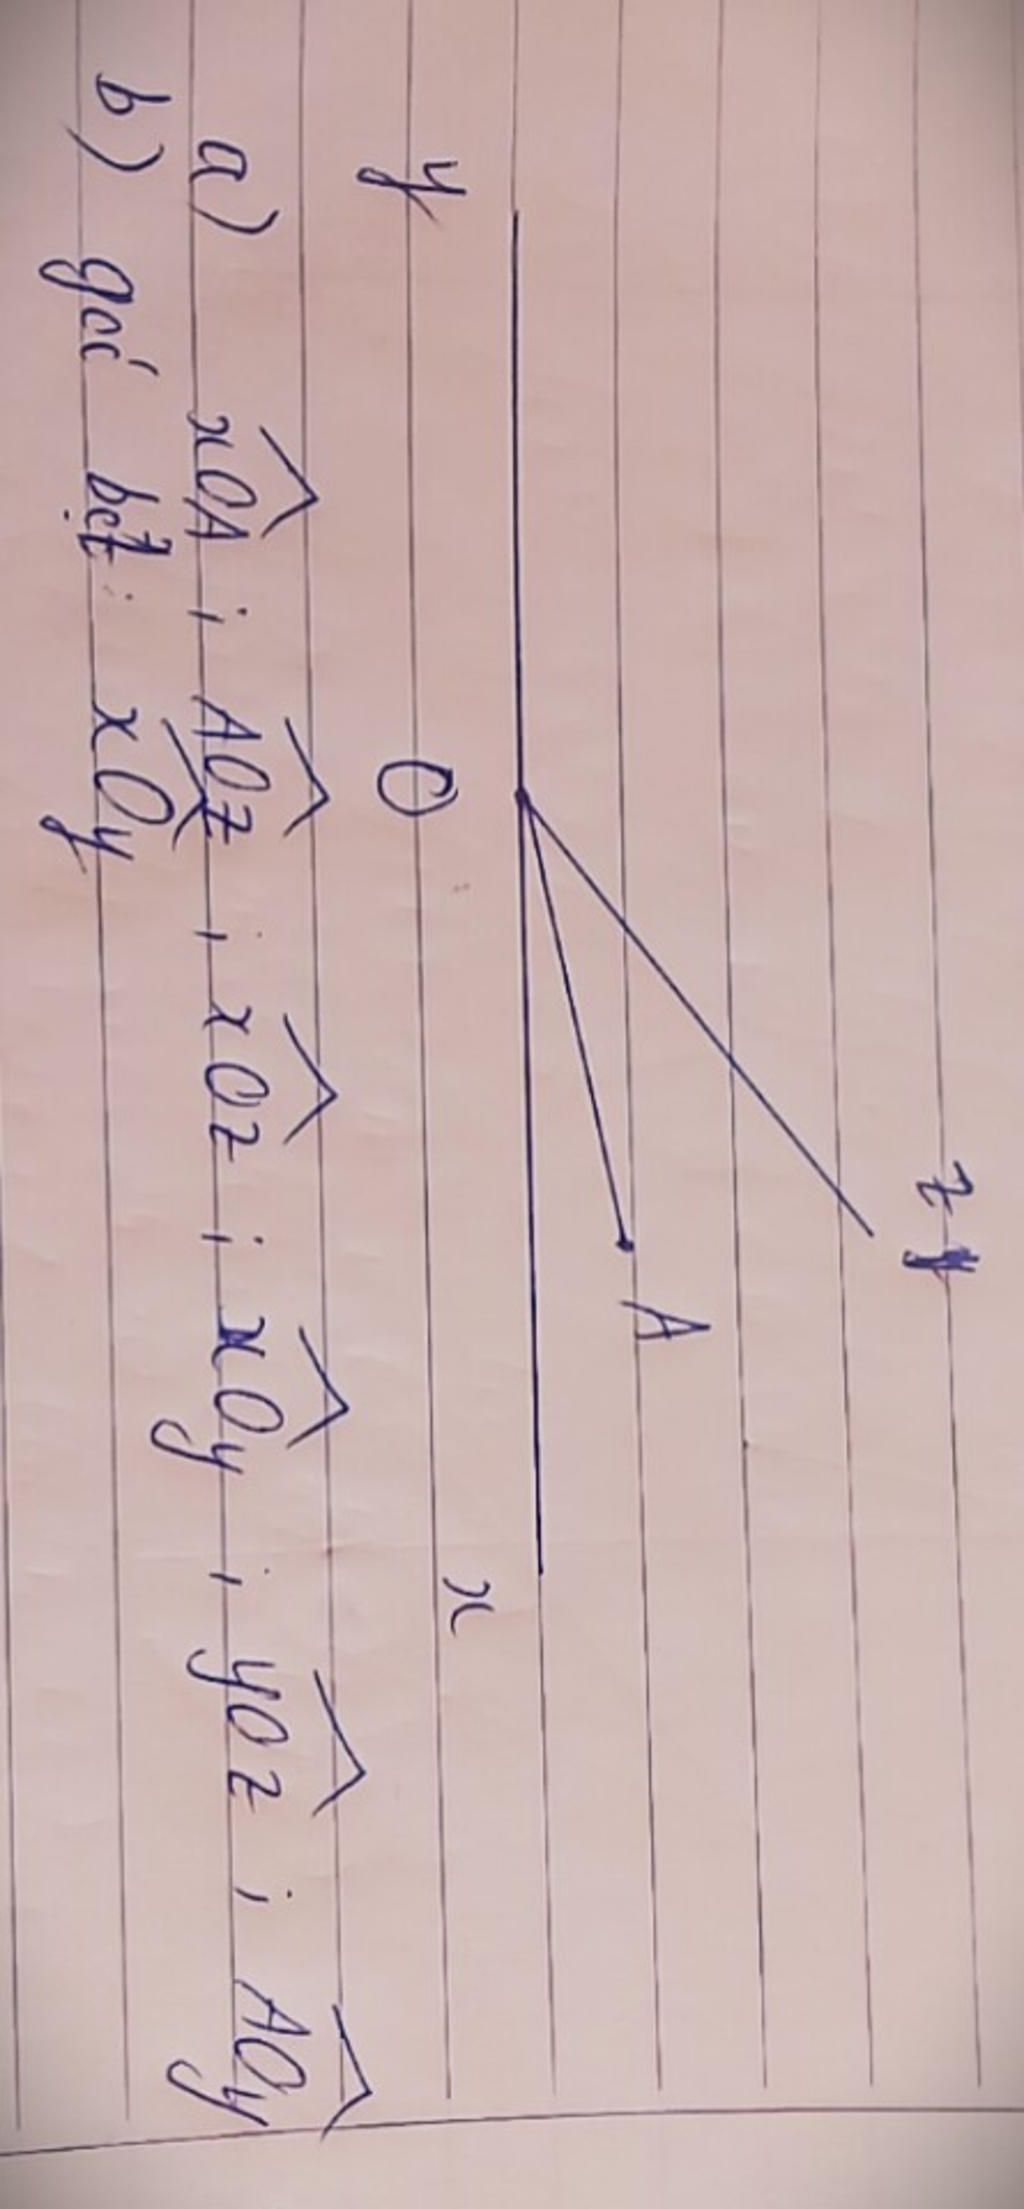 z
A
y O x
a) xOA ; AOz ; xOz ; xOy ; yOz ; AOy
b) góc bẹt : xOy